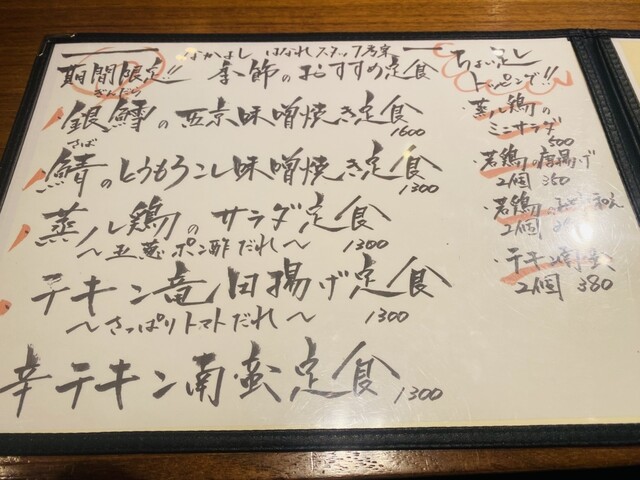 なかよし はなれスタッフ考案
期間限定!! 季節のおすすめ定食
ぎんだら
銀鱈の西京味噌焼き定食 1600
さば
鯖のとうもろこし味噌焼き定食 1300
蒸し鶏のサラダ定食
〜玉葱ポン酢だれ〜 1300
チキン竜田揚げ定食
〜さっぱりトマトだれ〜 1300
辛チキン南蛮定食 1300
ちょい足し
トッピング!!
・蒸し鶏の
ミニサラダ
500
・若鶏の唐揚げ
2個 350
・若鶏の
2個
・チキン南蛮
2個 380